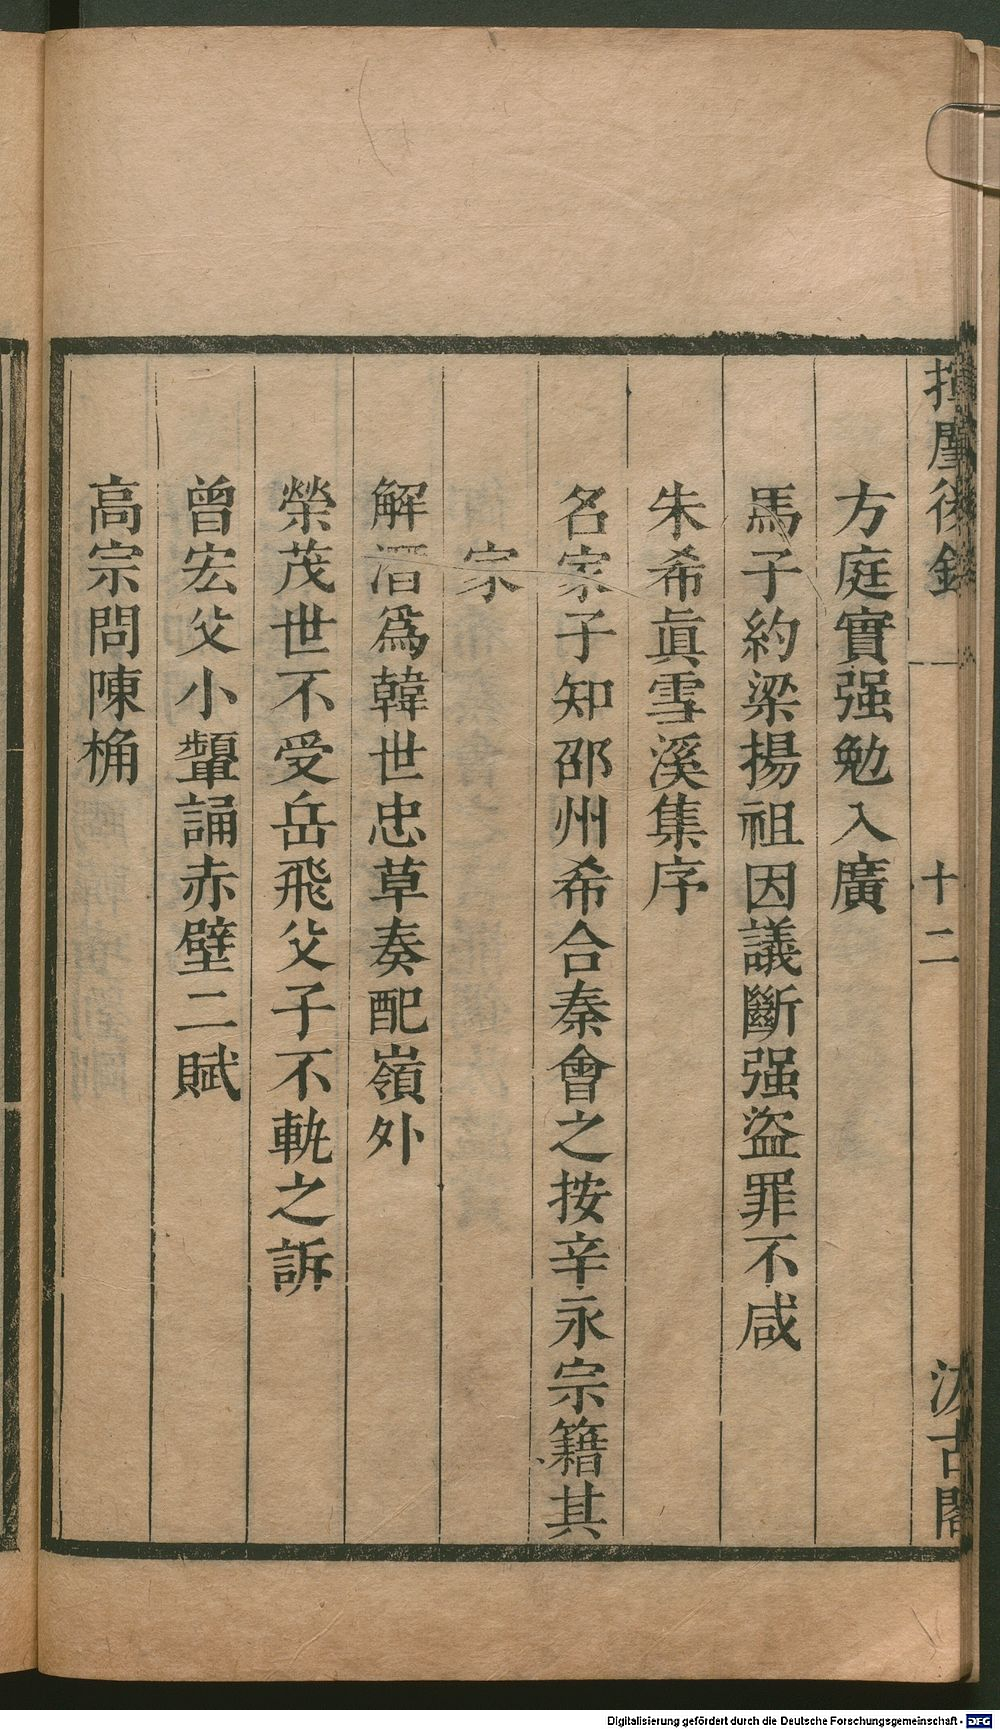 揮麈後錄
十二
汲古閣
方庭實强勉入廣
馬子約梁揚祖因議斷强盜罪不咸
朱希眞雪溪集序
名家子知邵州希合秦會之按辛永宗籍其
家
解潛爲韓世忠草奏配嶺外
榮茂世不受岳飛父子不軌之訴
曾宏父小鬟誦赤壁二賦
高宗問陳桷
Digitalisierung gefördert durch die Deutsche Forschungsgemeinschaft - DFG